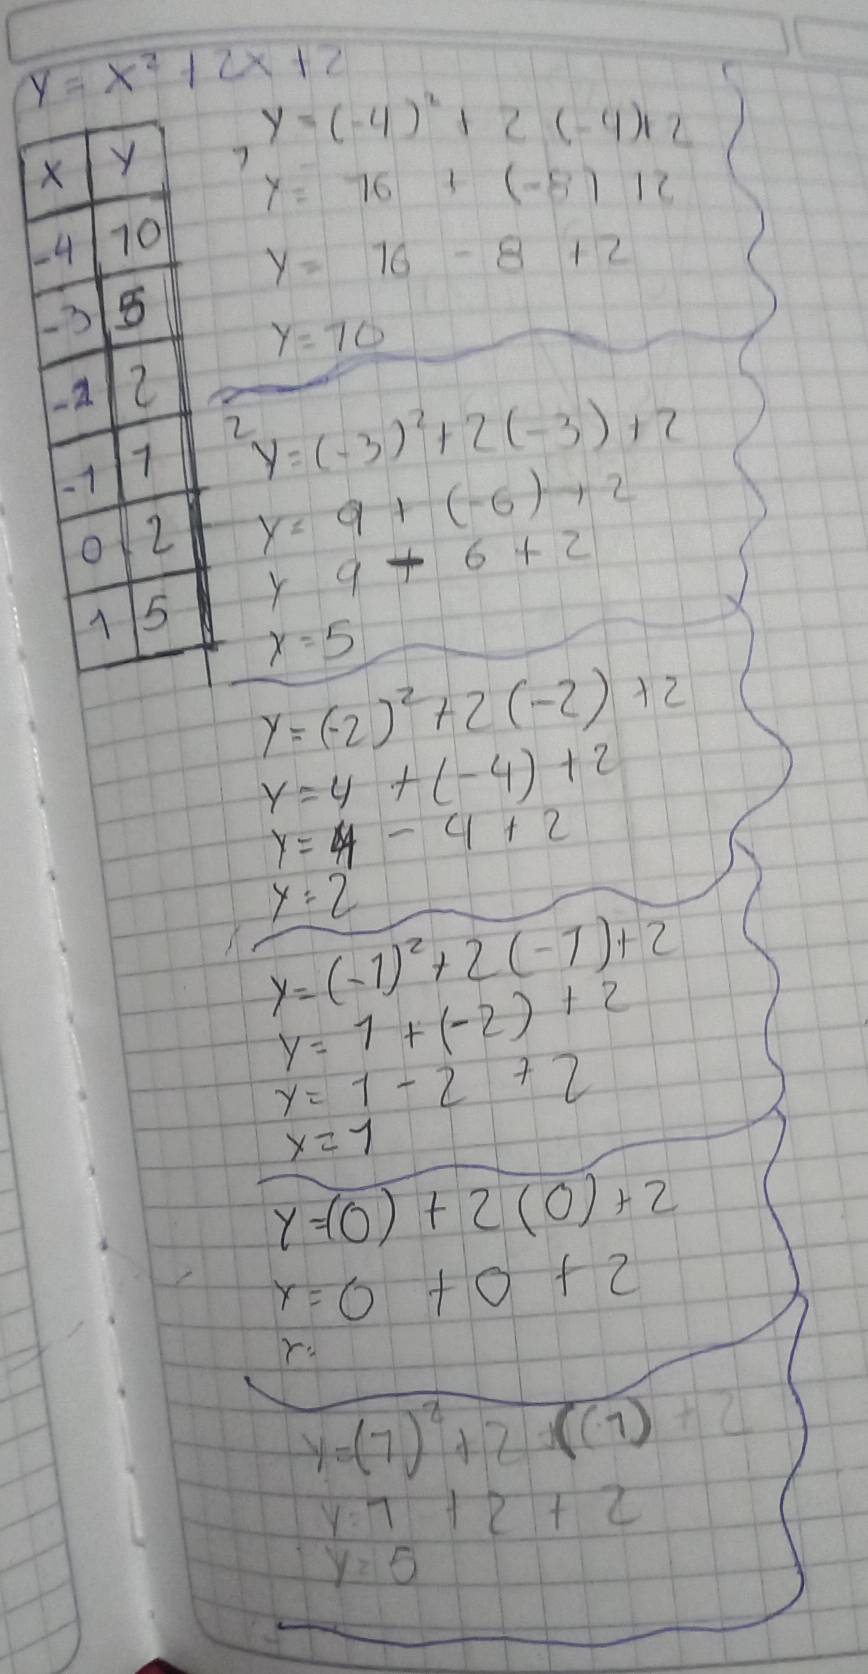 y = x² + 2x + 2
x y
-4 10
-3 5
-2 2
-1 1
0 2
1 5
1 y = (-4)² + 2 (-4) + 2
y = 16 + (-8) + 2
y = 16 - 8 + 2
y = 10
2 y = (-3)² + 2 (-3) + 2
y = 9 + (-6) + 2
y 9 - 6 + 2
y = 5
y = (-2)² + 2 (-2) + 2
y = 4 + (-4) + 2
y = 4 - 4 + 2
y = 2
y = (-1)² + 2 (-1) + 2
y = 1 + (-2) + 2
y = 1 - 2 + 2
y = 1
y = (0) + 2 (0) + 2
y = 0 + 0 + 2
y =
y = (1)² + 2 (1) + 2
y = 1 + 2 + 2
y = 5